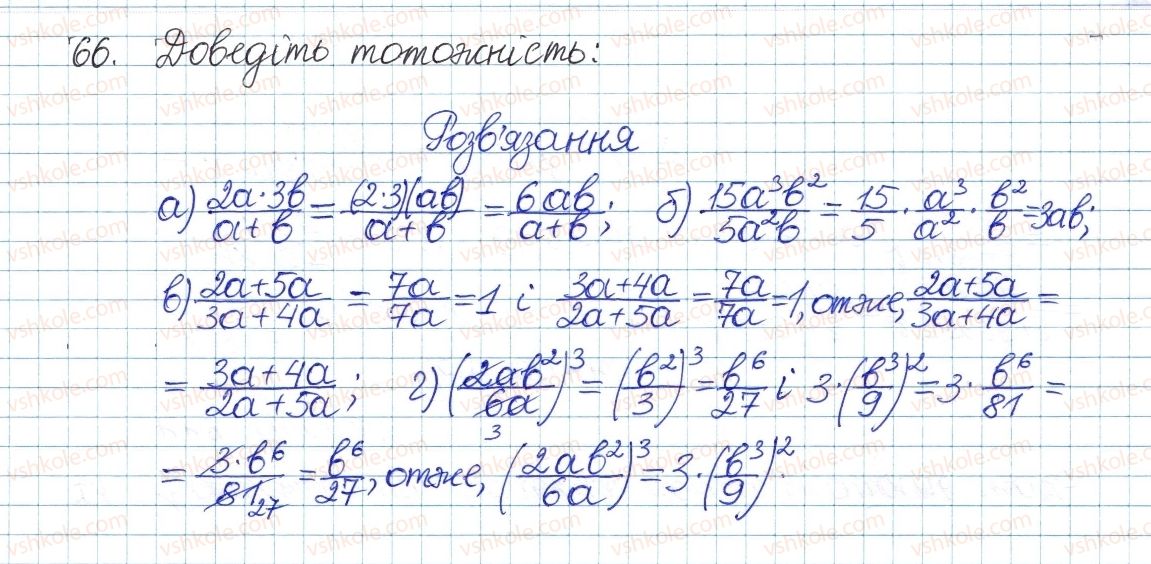 66. Доведіть тотожність:
Розв'язання
а) 2a·3b/(a+b) = (2·3)(ab)/(a+b) = 6ab/(a+b); б) 15a³b²/5a²b = 15/5 · a³/a² · b²/b = 3ab;
в) (2a+5a)/(3a+4a) = 7a/7a = 1 і (3a+4a)/(2a+5a) = 7a/7a = 1, отже, (2a+5a)/(3a+4a) =
= (3a+4a)/(2a+5a); г) (2ab²/6a)³ = (b²/3)³ = b⁶/27 і 3·(b³/9)² = 3·b⁶/81 =
3
= 3·b⁶/81 = b⁶/27, отже, (2ab²/6a)³ = 3·(b³/9)².
27
vshkole.com